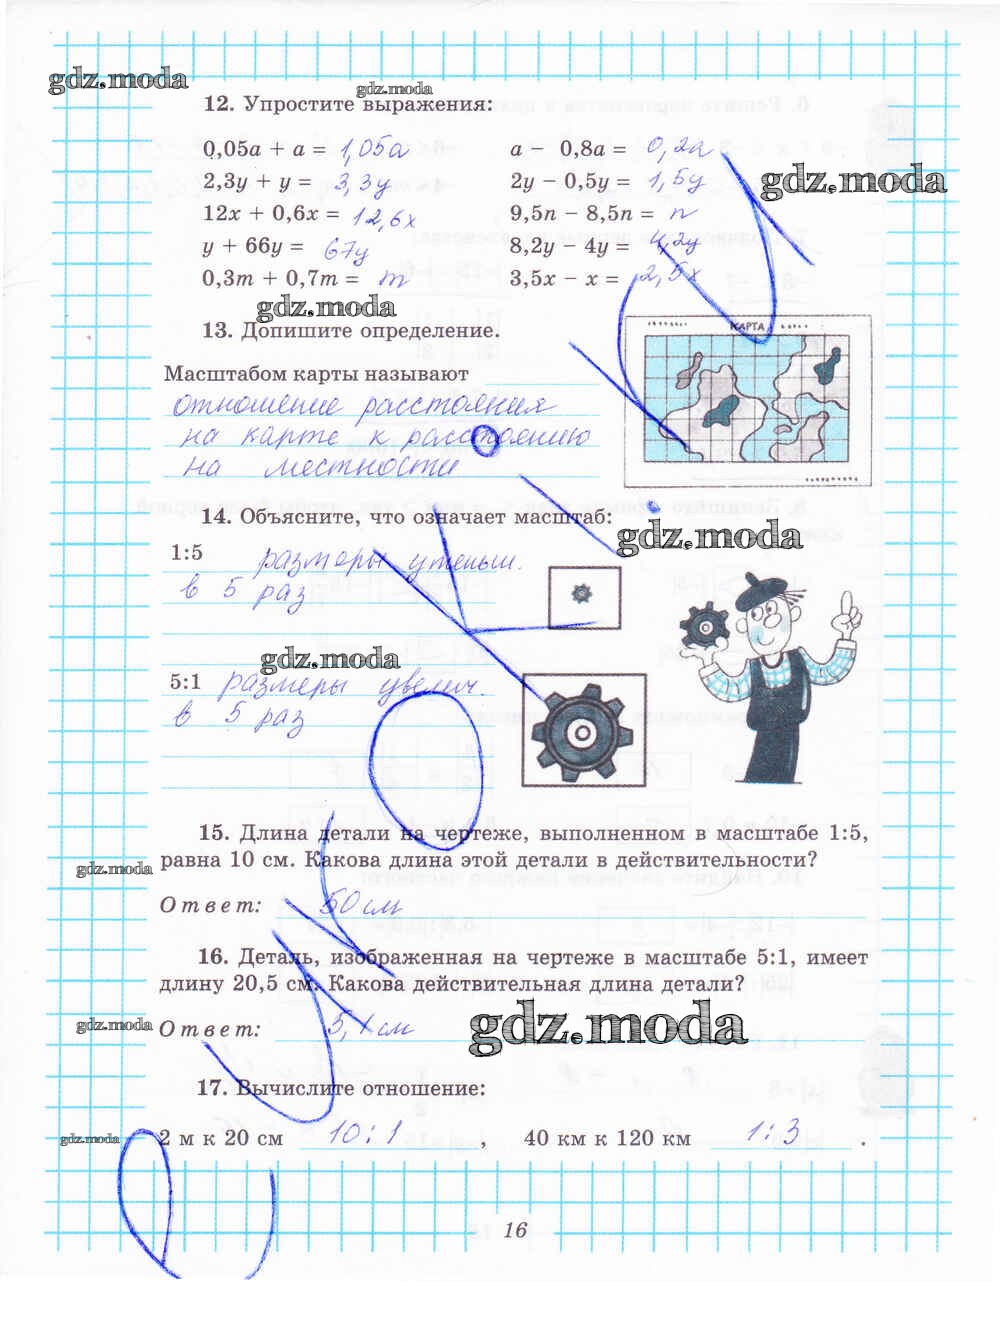 gdz.moda
gdz.moda
12. Упростите выражения:
0,05a + a = 1,05a
a − 0,8a = 0,2a
2,3y + y = 3,3y
2y − 0,5y = 1,5y
gdz.moda
12x + 0,6x = 12,6x
9,5n − 8,5n = n
y + 66y = 67y
8,2y − 4y = 4,2y
0,3m + 0,7m = m
3,5x − x = 2,5x
gdz.moda
13. Допишите определение.
КАРТА
Масштабом карты называют
отношение расстояния
на карте к расстоянию
на местности
14. Объясните, что означает масштаб:
gdz.moda
1:5 размеры уменьш.
в 5 раз
gdz.moda
5:1 размеры увелич.
в 5 раз
15. Длина детали на чертеже, выполненном в масштабе 1:5,
равна 10 см. Какова длина этой детали в действительности?
gdz.moda
Ответ: 50 см
16. Деталь, изображенная на чертеже в масштабе 5:1, имеет
длину 20,5 см. Какова действительная длина детали?
gdz.moda
gdz.moda
Ответ: 5,1 см
17. Вычислите отношение:
gdz.moda
2 м к 20 см 10:1 , 40 км к 120 км 1:3 .
16